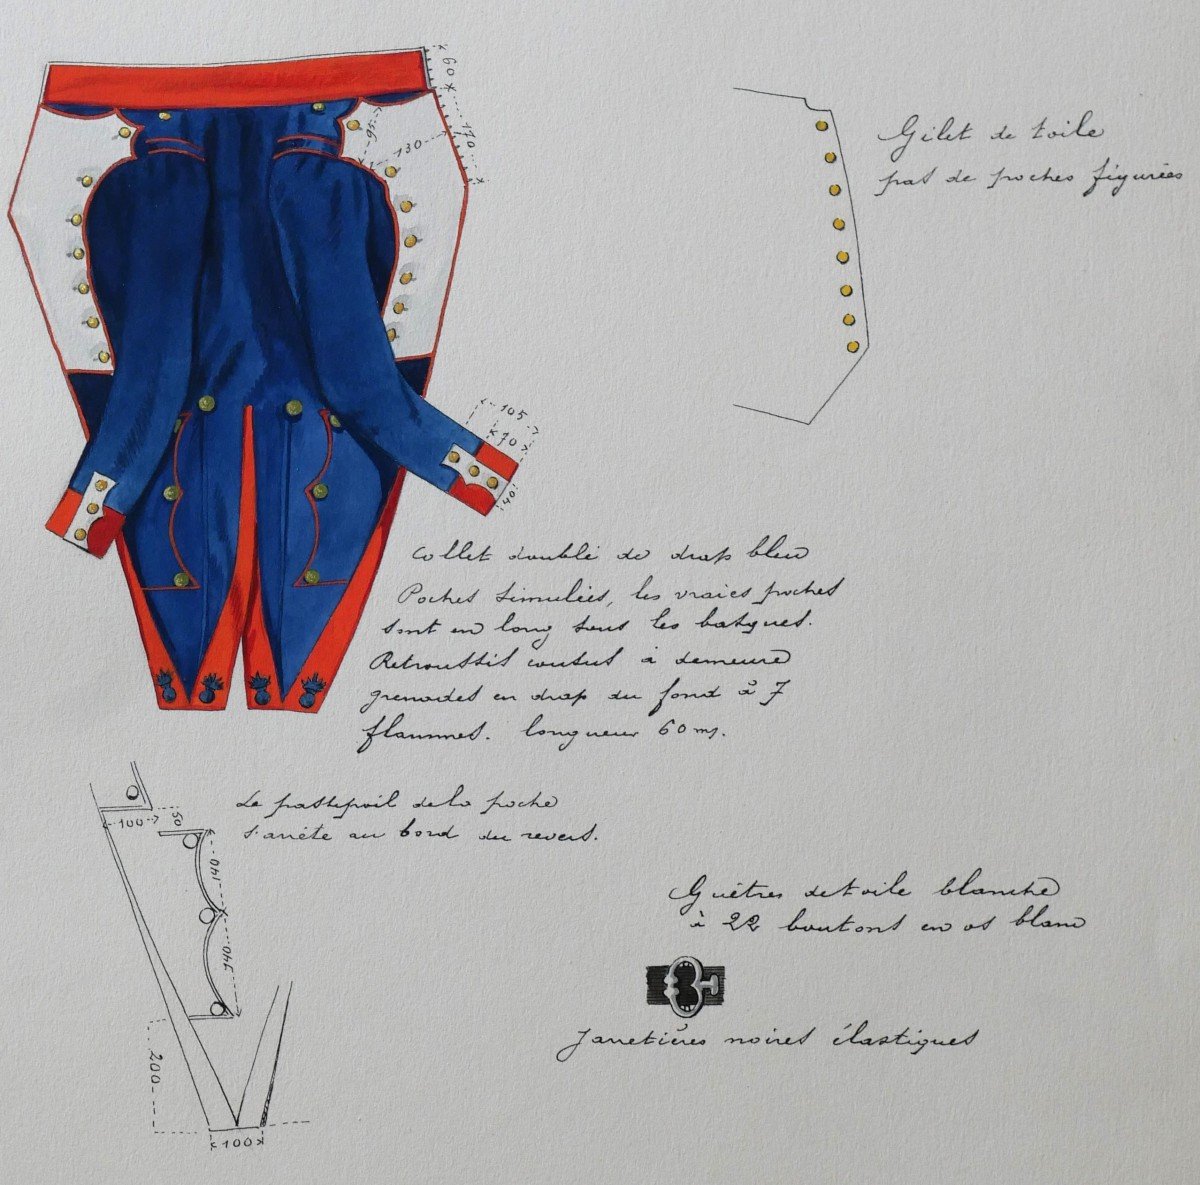 60
170
95
130
Gilet de toile
pas de poches figurées
105
70
40
Collet doublé de drap bleu
Poches simulées, les vraies poches
sont en long sous les basques.
Retroussis cousus à demeure
grenades en drap du fond à 7
flammes. longueur 60 m/.
Le passepoil de la poche
s'arrête au bord du revers.
100
50
140
140
200
100
Guêtres de toile blanche
à 22 boutons en os blanc
Jarretières noires élastiques